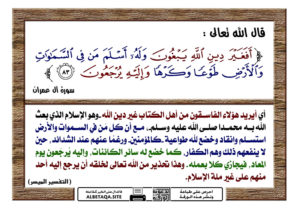 قال الله تعالى :
﴿ أَفَغَيْرَ دِينِ اللَّهِ يَبْغُونَ وَلَهُ أَسْلَمَ مَن فِي السَّمَاوَاتِ
وَالْأَرْضِ طَوْعًا وَكَرْهًا وَإِلَيْهِ يُرْجَعُونَ ٨٣ ﴾
سورة آل عمران
أي أيريد هؤلاء الفاسقون من أهل الكتاب غير دين الله -وهو الإسلام الذي بعث
الله به محمدا صلى الله عليه وسلم-، مع أن كل من في السموات والأرض
استسلم وانقاد وخضع لله طواعية -كالمؤمنين، ورغما عنهم عند الشدائد، حين
لا ينفعهم ذلك وهم الكفار، كما خضع له سائر الكائنات، وإليه يرجعون يوم
المعاد، فيجازي كلا بعمله. وهذا تحذير من الله تعالى لخلقه أن يرجع إليه أحد
منهم على غير ملة الإسلام.
(التفسير الميسر)
ALBETAQA.SITE